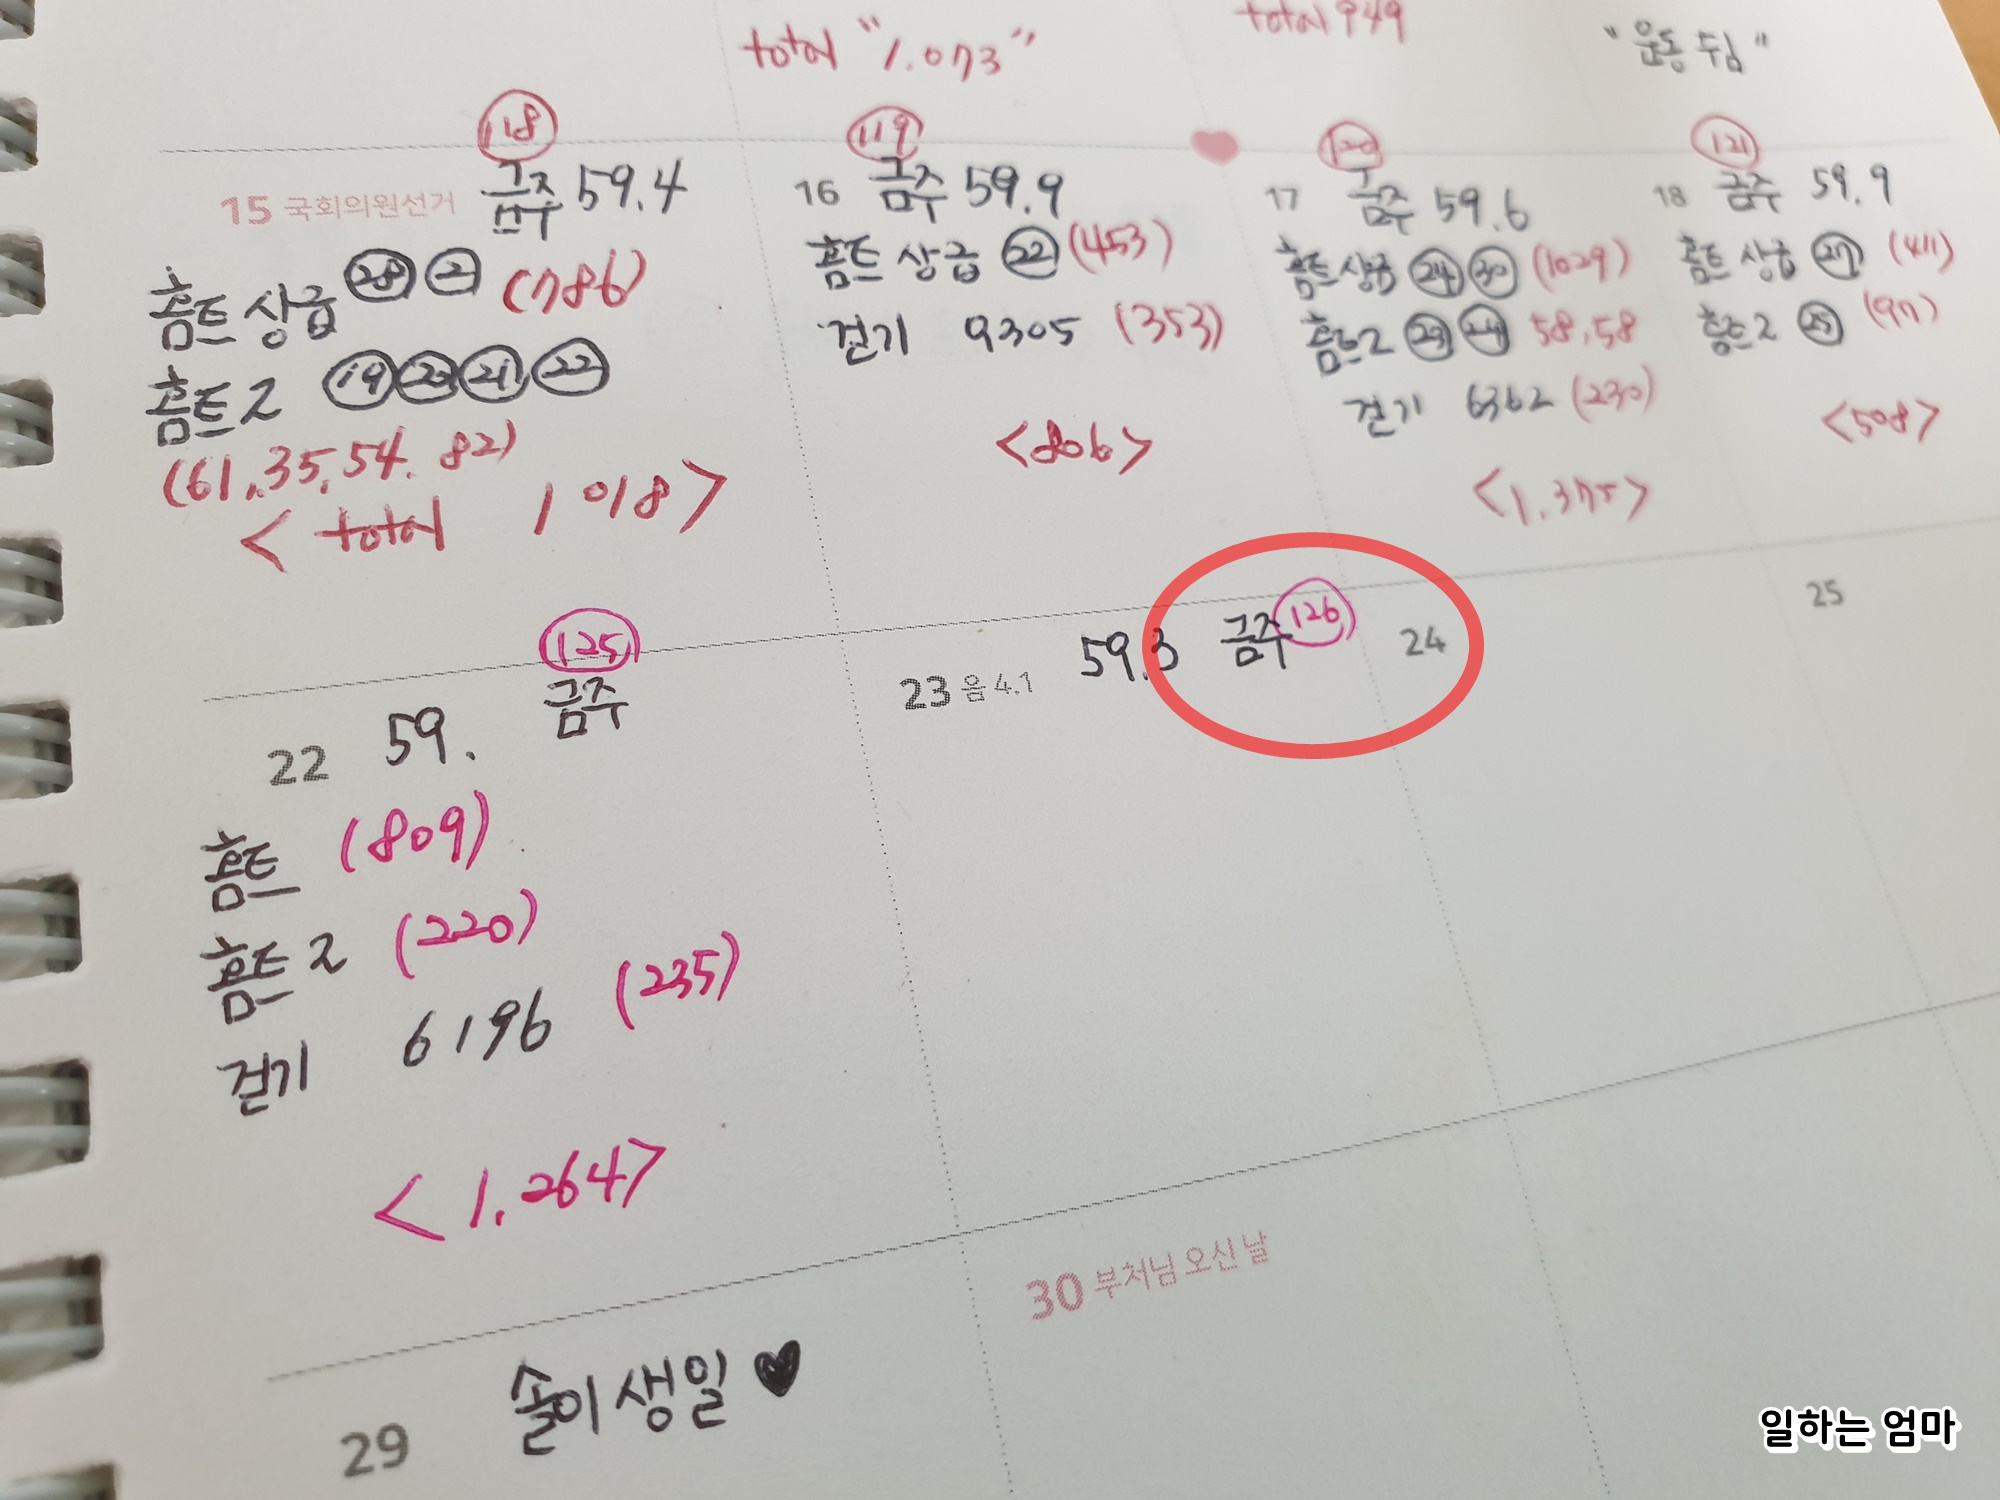 total "1.073"
total 949
"운동 쉼"
118
15 국회의원선거 금주 59.4
홈트 상급 28 2 (786)
홈트2 19 20 21 22
(61, 35, 54, 82)
< total 1018>
119
16 금주 59.9
홈트 상급 22 (453)
걷기 9305 (353)
<806>
120
17 금주 59.6
홈트 상급 24 30 (1029)
홈트2 23 24 58, 58
걷기 6362 (230)
<1.375>
121
18 금주 59.9
홈트 상급 27 (411)
홈트2 25 (97)
<508>
125
22 59. 금주
홈트 (809)
홈트2 (220)
걷기 6196 (235)
<1.264>
23 음 4.1 59.3 금주 126
24
25
29 솔이 생일 ♥
30 부처님 오신 날
일하는 엄마